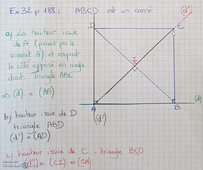 Ex 32 p 188 : ABCD est un carré
D
C
a) La hauteur issue
de A (passe par le
sommet A) et coupe
le côté opposé en angle
droit. Triangle ABC
(d) = (AB)
I
b) hauteur issue de D
triangle ABD
(d') = (AD)
(d')
A
B
(d)
c) hauteur issue de C . triangle BCD
(d'') = (CI) = (CA)